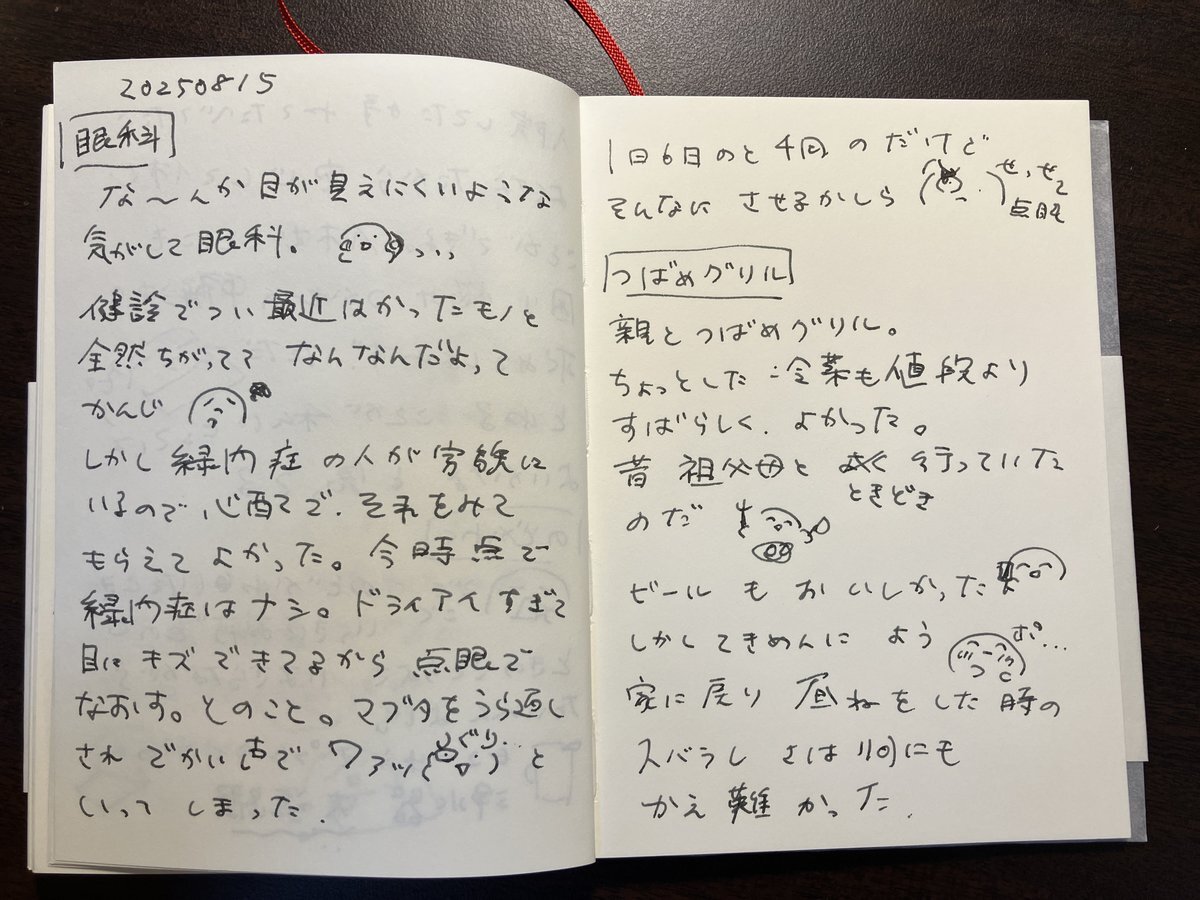 20250815
眼科
な〜んか目が見えにくいような
気がして眼科。
健診でつい最近はかったモノと
全然ちがってて なんなんだよって
かんじ
しかし 緑内症 の人が 家族に
いるので 心配で、それをみて
もらえて よかった。今時点で
緑内症は ナシ。ドライアイ すぎて
目に キズ できてるから 点眼して
なおす。とのこと。マブタを うら返し
され でかい声で ワァッ ぐりっ… と
いって しまった.
1日6日のと 4回 のだけど
そんなに させるかしら せっせと
点眼
つばめグリル
親と つばめグリル。
ちょっとした 冷菜も 値段より
すばらしく、よかった。
昔 祖父母と 行っていた
ときどき
のだ
ビール も おいしかった
しかし てきめんに よう ポ…
家に 戻り 昼ねを した 時の
スバラしさは 何にも
かえ 難 かった.